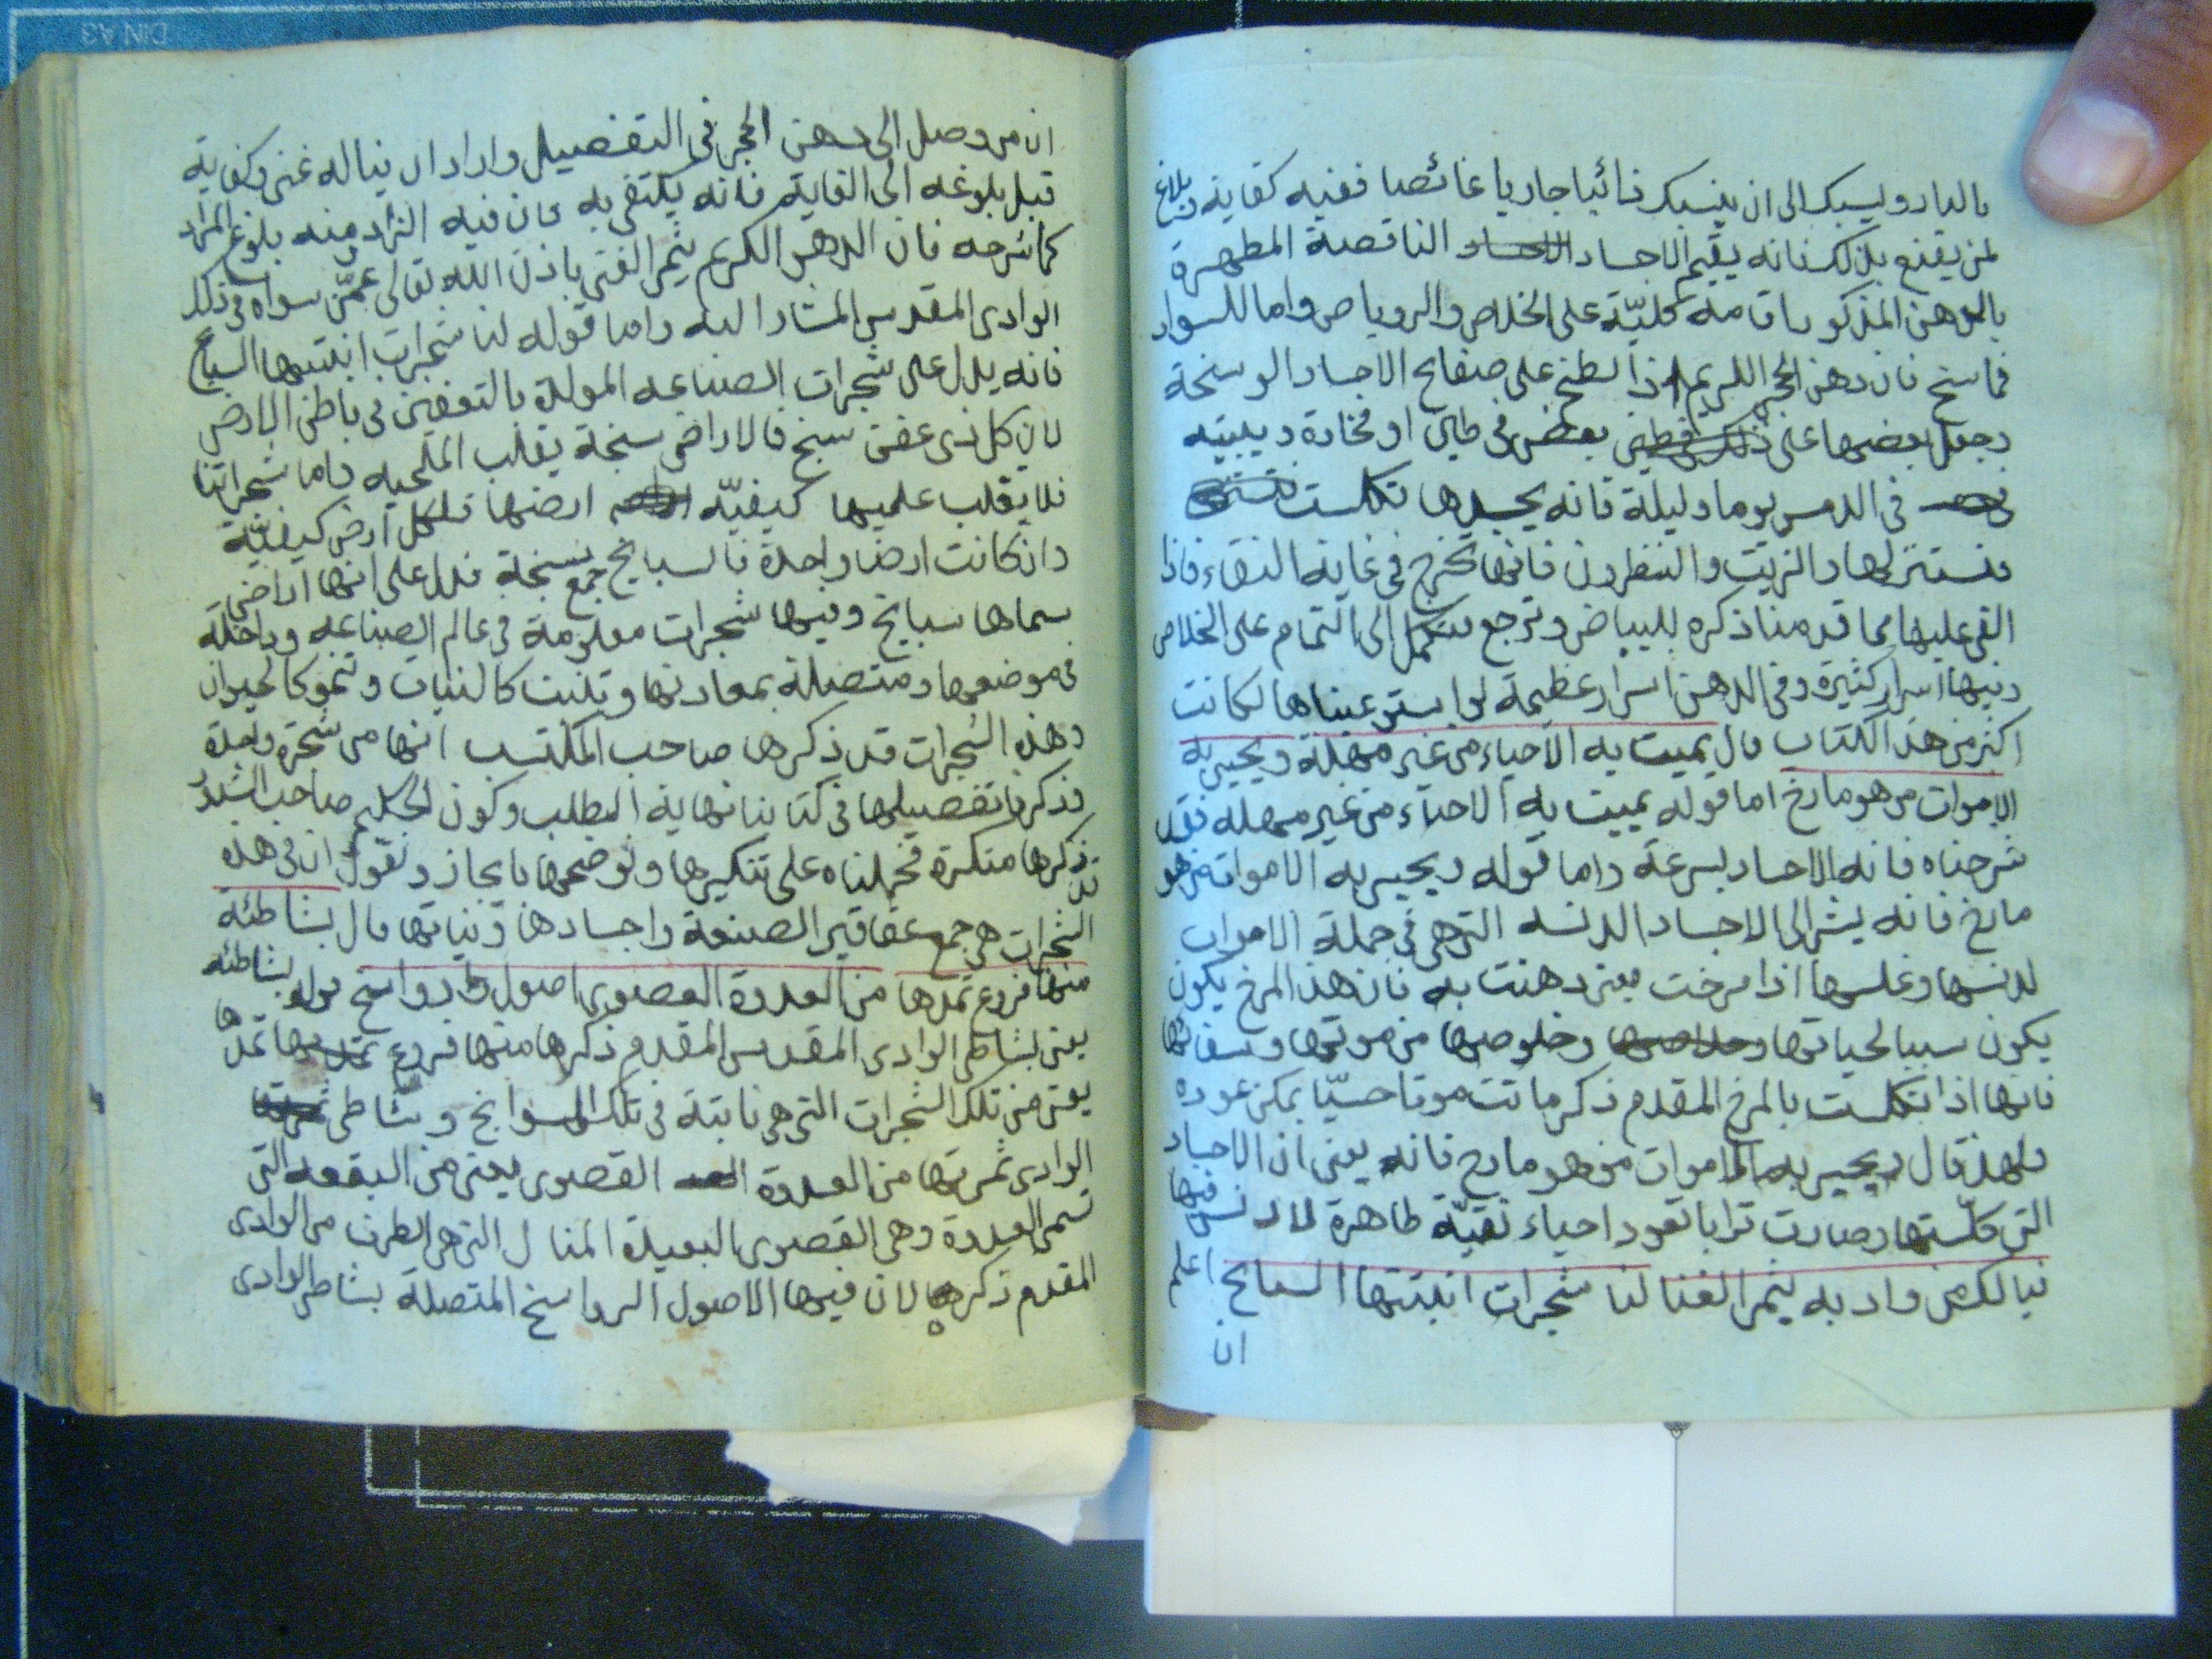 بالبارد ويسبك الى ان ينسبك ذائبا جاريا غائصا ففيه كفاية وبلاغ
لمن يقنع بذلك فانه يقيم الاجساد الناقصة المطهرة
بالدهن المذكور اقامة كليّة على الخلاص والروباص واما للسواد
فما سنح فان دهن الحجر الكريم اذا لطخ على صفايح الاجساد الوسخة
وجعل بعضها على بعض في طين او فخارة ويبيته
في الدمس يوما وليلة فانه يجسدها تكلست
فتستنزلها بالزيت والنطرون فانها تخرج في غاية النقاء فاذا
القى عليها مما قدمنا ذكره للبياض وترجع تتكمل الى التمام على الخلاص
وفيها اسرار كثيرة وفي الدهن اسرار عظيمة لو استوعبناها لكانت
اكثر من هذا الكتاب قال يميت به الاحياء من غير مهلة ويحيى به
الاموات من هو مارخ اما قوله يميت به الاحياء من غير مهلة فقد
شرحناه فانه الاجساد بسرعة واما قوله ويحيى به الاموات من هو
مارخ فانه يشير الى الاجساد الدنسه التي هي في جملة الاموات
لدنسها وغلسها اذا مرخت يعنى دهنت به فان هذا المرخ يكون
يكون سببا لحياتها وخلوصها من موتها وشفائها
فانها اذا تكلست بالمرخ المقدم ذكره ماتت موتا حسيّا يمكن عوده
ولهذا قال ويحيى به الاموات من هو مارخ فانه يعني ان الاجساد
التي كلّستها وصارت ترابا تعود احياء نقيّة طاهرة لا دنس فيها
فيالك من واد به يثمر الغنا لنا شجرات انبتتها السبايخ اعلم
ان
ان من وصل الى دهن الحجر في التفصيل واراد ان يناله غنى وكفاية
قبل بلوغه الى الغاية فانه يكتفى به فان فيه الزاد ومنه بلوغ المراد
كما شرحه فان الدهن الكريم يثمر الغنى باذن الله تعالى عمّن سواه في ذلك
الوادي المقدس المشار اليه واما قوله لنا شجرات انبتتها السباخ
فانه يدل على شجرات الصناعه المولدة بالتعفين في باطن الارض
لان كل ذي عفن سبخ فالاراضي سبخة يغلب الملحيه واما شجراتنا
فلا يغلب عليها كيفيّه ارضها فلكل ارض كيفيّة
وان كانت ارضا واحدة فالسبايخ جمع سبخة فدل على انها اراضي
سماها سبايخ وفيها شجرات معلومة في عالم الصناعة وداخلة
في موضعها ومتصلة بمعادنها وتنبت كالنبات وتنمو كالحيوان
وهذه الشجرات قد ذكرها صاحب المكتسب انها من شجرة واحدة
وذكرنا تفصيلها في كتابنا نهاية المطلب وكون الحكيم صاحب الشذور
قد ذكرها منكرة فحملناه على تنكيرها ونوضحها بايجاز ونقول ان في هذه
الشجرات هي جمع عقاقير الصنعة واجسادها ونباتها قال بشاطئه
منها فروع تمدها من العدوة القصوى اصول رواسخ قوله بشاطئه
يعنى بشاطى الوادى المقدس المقدم ذكرها منها فروع تمدها
يعنى من تلك الشجرات التي هي نابتة في تلك السوابخ وشاطى
الوادى ثمرتها من العدوة القصوى يعنى من البقعه التي
تسمى العدوة وهي القصوى البعيدة المنال التي هي الطرف من الوادى
المقدم ذكره لان فيها الاصول الرواسخ المتصلة بشاطى الوادى